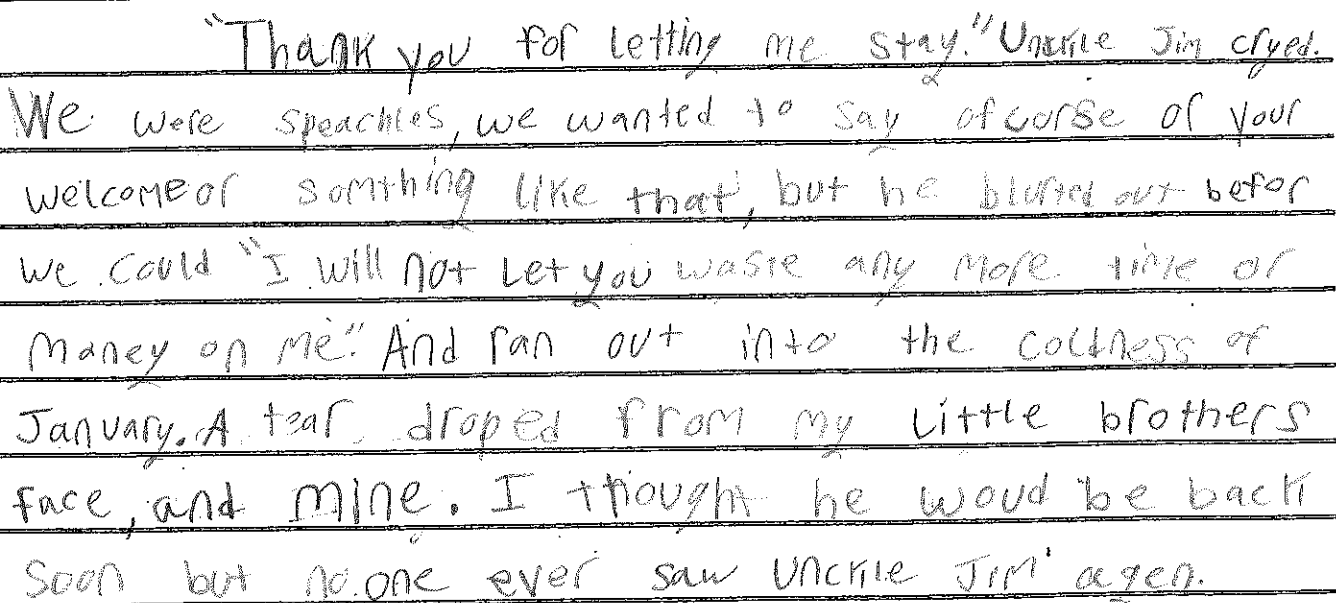 "Thank you for letting me stay." Unckle Jim cryed.
We were speachles, we wanted to say ofcorse or your
welcome or somthing like that, but he blurted out befor
we could "I will not let you waste any more time or
money on me." And ran out into the coldness of
January. A tear droped from my little brothers
face, and mine. I thought he woud be back
soon but no one ever saw Unckle Jim agen.